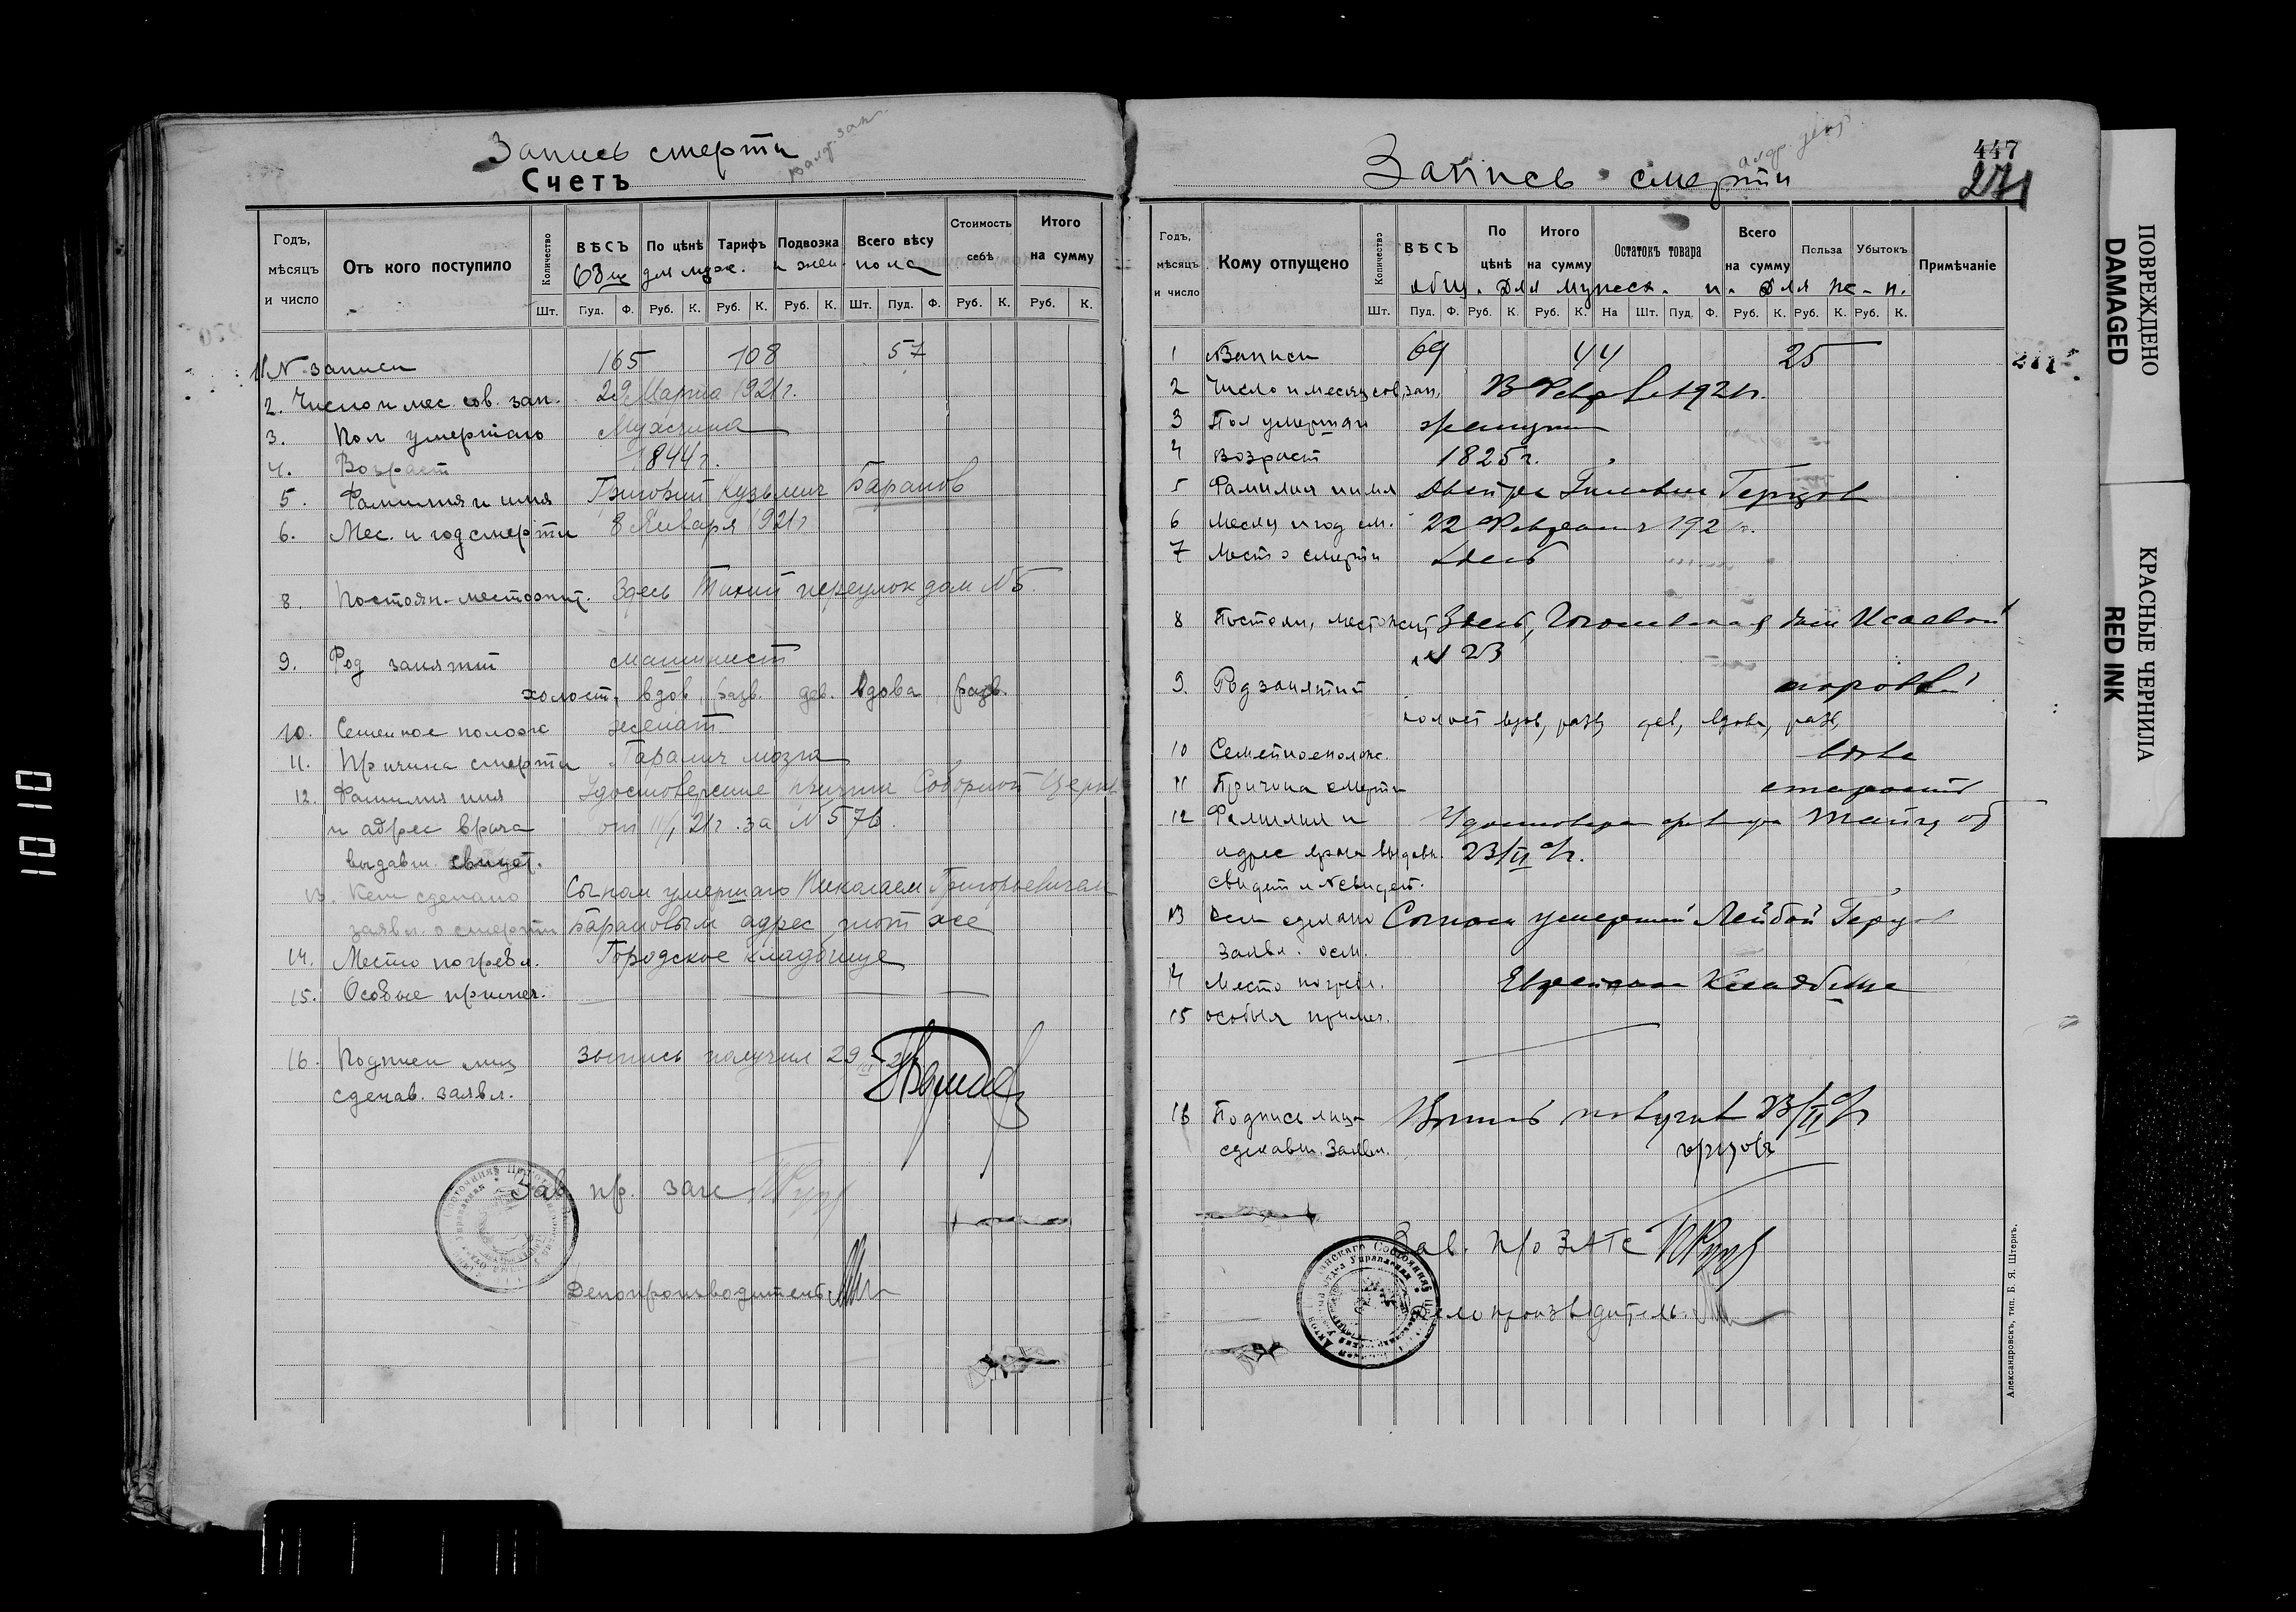 Запись смерти
Счетъ
Годъ, мѣсяцъ и число
Отъ кого поступило
Количество
ВѢСЪ
По цѣнѣ
Тарифъ
Подвозка
Всего вѣсу
Стоимость себѣ
Итого на сумму
общ. для муж. и жен. пола
Шт. Пуд. Ф. Руб. К. Руб. К. Руб. К. Шт. Пуд. Ф. Руб. К. Руб. К.
1 N записи 165 108 57
2. Число и мес. сов. зап. 29 Марта 1921 г.
3. Пол умершаго Мужчина
4. Возраст 1844 г.
5. Фамилия и имя Григорий Кузьмич Баранов
6. Мес. и год смерти 8 Января 1921 г
8. Постоян. местожит. Здесь Тихий переулок дом N 5.
9. Род занятий машинист
холост, вдов, разв. дев. вдова, разв.
10. Семейное полож женат
11. Причина смерти Паралич мозга
12. Фамилия имя Удостоверение причта Соборной Церкви
и адрес врача от 21 г. за N 576.
выдавш. свидет.
13. Кем сделано Сыном умершаго Николаем Григорьевичем
заявл. о смерти Барановым адрес тот же
14. Место погребл. Городское кладбище
15. Особые примеч.
16. Подписи лиц запись получил 29
сделав. заявл.
Зав. пр. загс
Делопроизводитель
447
271
Запись смерти
Годъ, мѣсяцъ и число
Кому отпущено
Количество
ВѢСЪ
По цѣнѣ
Итого на сумму
Остатокъ товара
Всего на сумму
Польза
Убытокъ
Примѣчаніе
общ. для мужск. и для ж. п.
Шт. Пуд. Ф. Руб. К. Руб. К. На Шт. Пуд. Ф. Руб. К. Руб. К. Руб. К.
1 N записи 69 44 25
2 Число и месяц сов. зап. 23 Февр 1921 г.
3 Пол умершаго
4 Возраст 1825 г.
5 Фамилия и имя Герцов
6 Месяц и год см. 22 Февраля 1921 г.
7 Место смерти Здесь
8 Постоян, местожит. Здесь, Гоголевская, Исаевой
N 23
9. Род занятий
холост вдов, разв, дев, вдова, разв,
10 Семейное полож. вдова
11 Причина смерти старость
12 Фамилия и
адрес врача выдавш. 23/II
свидет и N свидет.
13 Кем сделано Сыном умершей Лейбой Герцов
заявл. о см.
14 Место погребл. Еврейское Кладбище
15 особыя примеч.
16 Подпись лица получил 23/II
сделавш. заявл.
Зав. п/о ЗАГС
Делопроизводитель.
Александровскъ, тип. Б. Я. Штернъ.
ПОВРЕЖДЕНО
DAMAGED
КРАСНЫЕ ЧЕРНИЛА
RED INK
1010